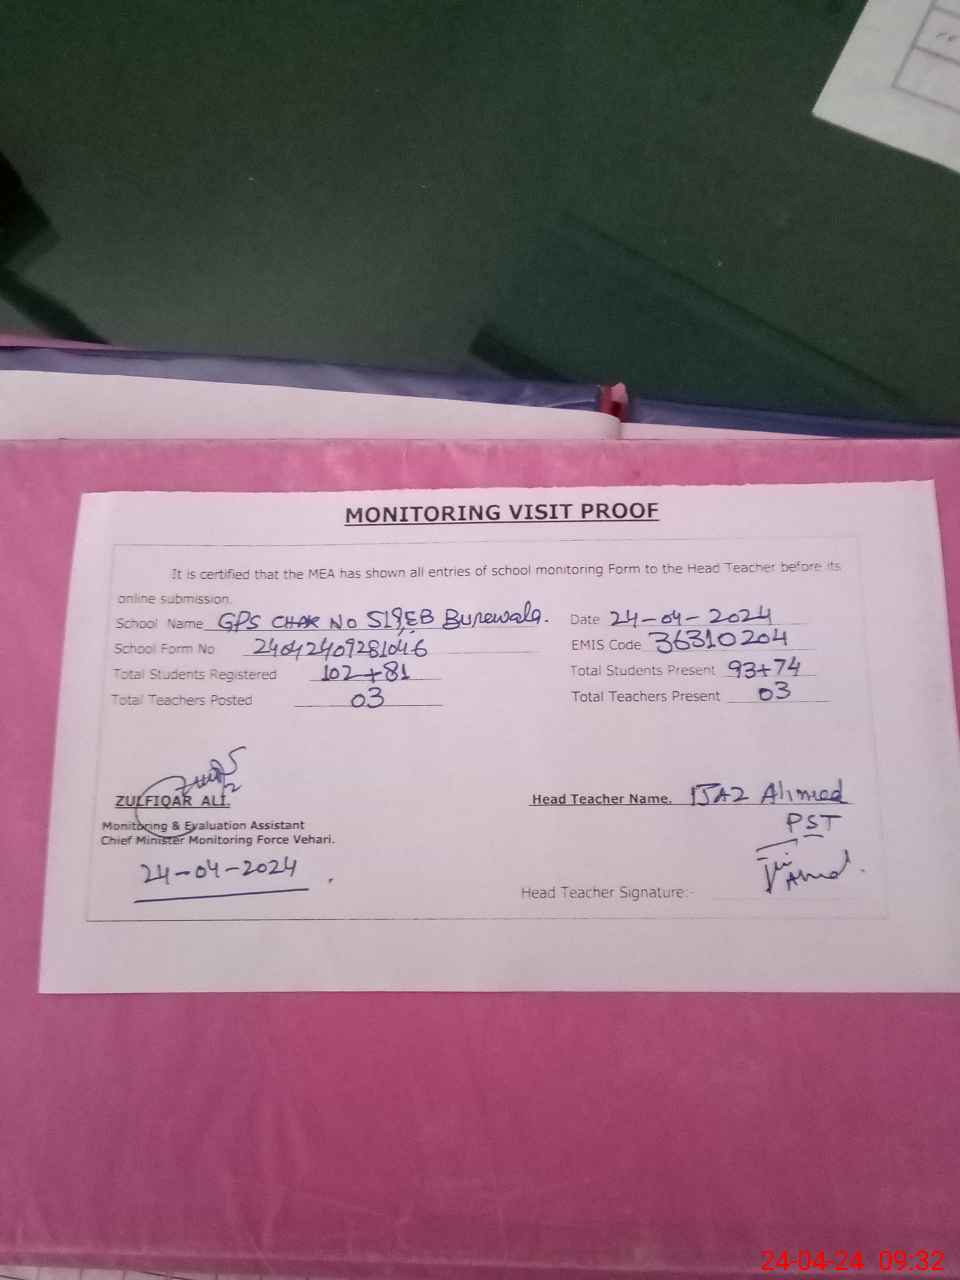 MONITORING VISIT PROOF
It is certified that the MEA has shown all entries of school monitoring Form to the Head Teacher before its
online submission.
School Name GPS CHAK NO 519,EB Burewala. Date 24-04-2024
School Form No 24042409281046 EMIS Code 36310204
Total Students Registered 102+81 Total Students Present 93+74
Total Teachers Posted 03 Total Teachers Present 03
ZULFIQAR ALI. Head Teacher Name. IJAZ Ahmed
Monitoring & Evaluation Assistant PST
Chief Minister Monitoring Force Vehari.
24-04-2024
Head Teacher Signature:-
24-04-24 09:32